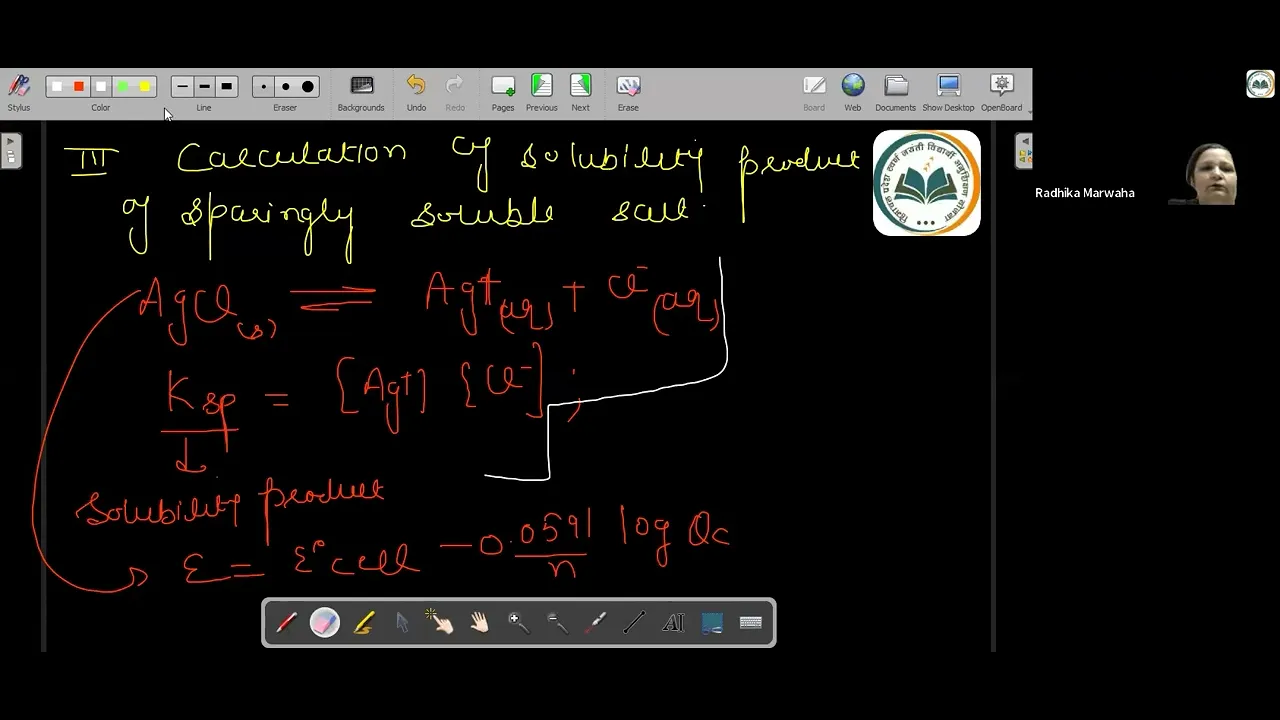 Stylus Color Line Eraser Backgrounds Undo Redo Pages Previous Next Erase Board Web Documents Show Desktop OpenBoard
III Calculation of solubility product
of sparingly soluble salt.
AgCl(s) ⇌ Ag+(aq) + Cl-(aq)
Ksp = [Ag+] [Cl-] ;
↓
Solubility product
E = E°cell - 0.0591/n log Qc
Radhika Marwaha
AI